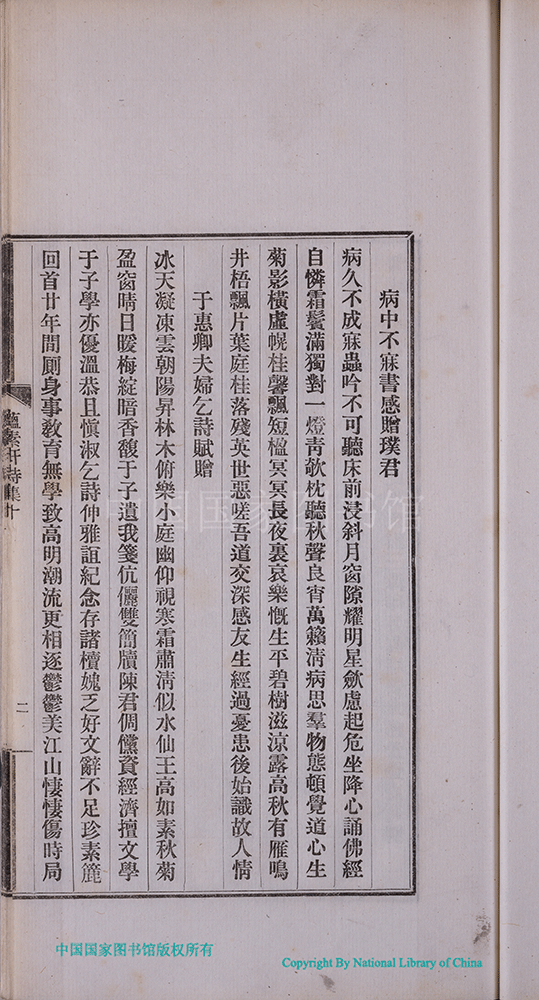 病中不寐書感贈璞君
病久不成寐蟲吟不可聽床前浸斜月窗隙耀明星歛慮起危坐降心誦佛經
自憐霜鬢滿獨對一燈靑欹枕聽秋聲良宵萬籟清病思羣物態頓覺道心生
菊影橫虛幌桂馨飄短楹冥冥長夜裏哀樂慨生平碧樹滋涼露高秋有雁鳴
井梧飄片葉庭桂落殘英世惡嗟吾道交深感友生經過憂患後始識故人情
于惠卿夫婦乞詩賦贈
冰天凝凍雲朝陽昇林木俯樂小庭幽仰視寒霜肅清似水仙王高如素秋菊
盈窗晴日暖梅綻暗香馥于子遺我箋伉儷雙簡牘陳君倜儻資經濟擅文學
于子學亦優溫恭且愼淑乞詩伸雅誼紀念存諸櫝媿乏好文辭不足珍素簏
回首廿年間厠身事敎育無學致高明潮流更相逐鬱鬱美江山悽悽傷時局
蘊素軒詩集十
二
中国国家图书馆
中国国家图书馆版权所有
Copyright By National Library of China